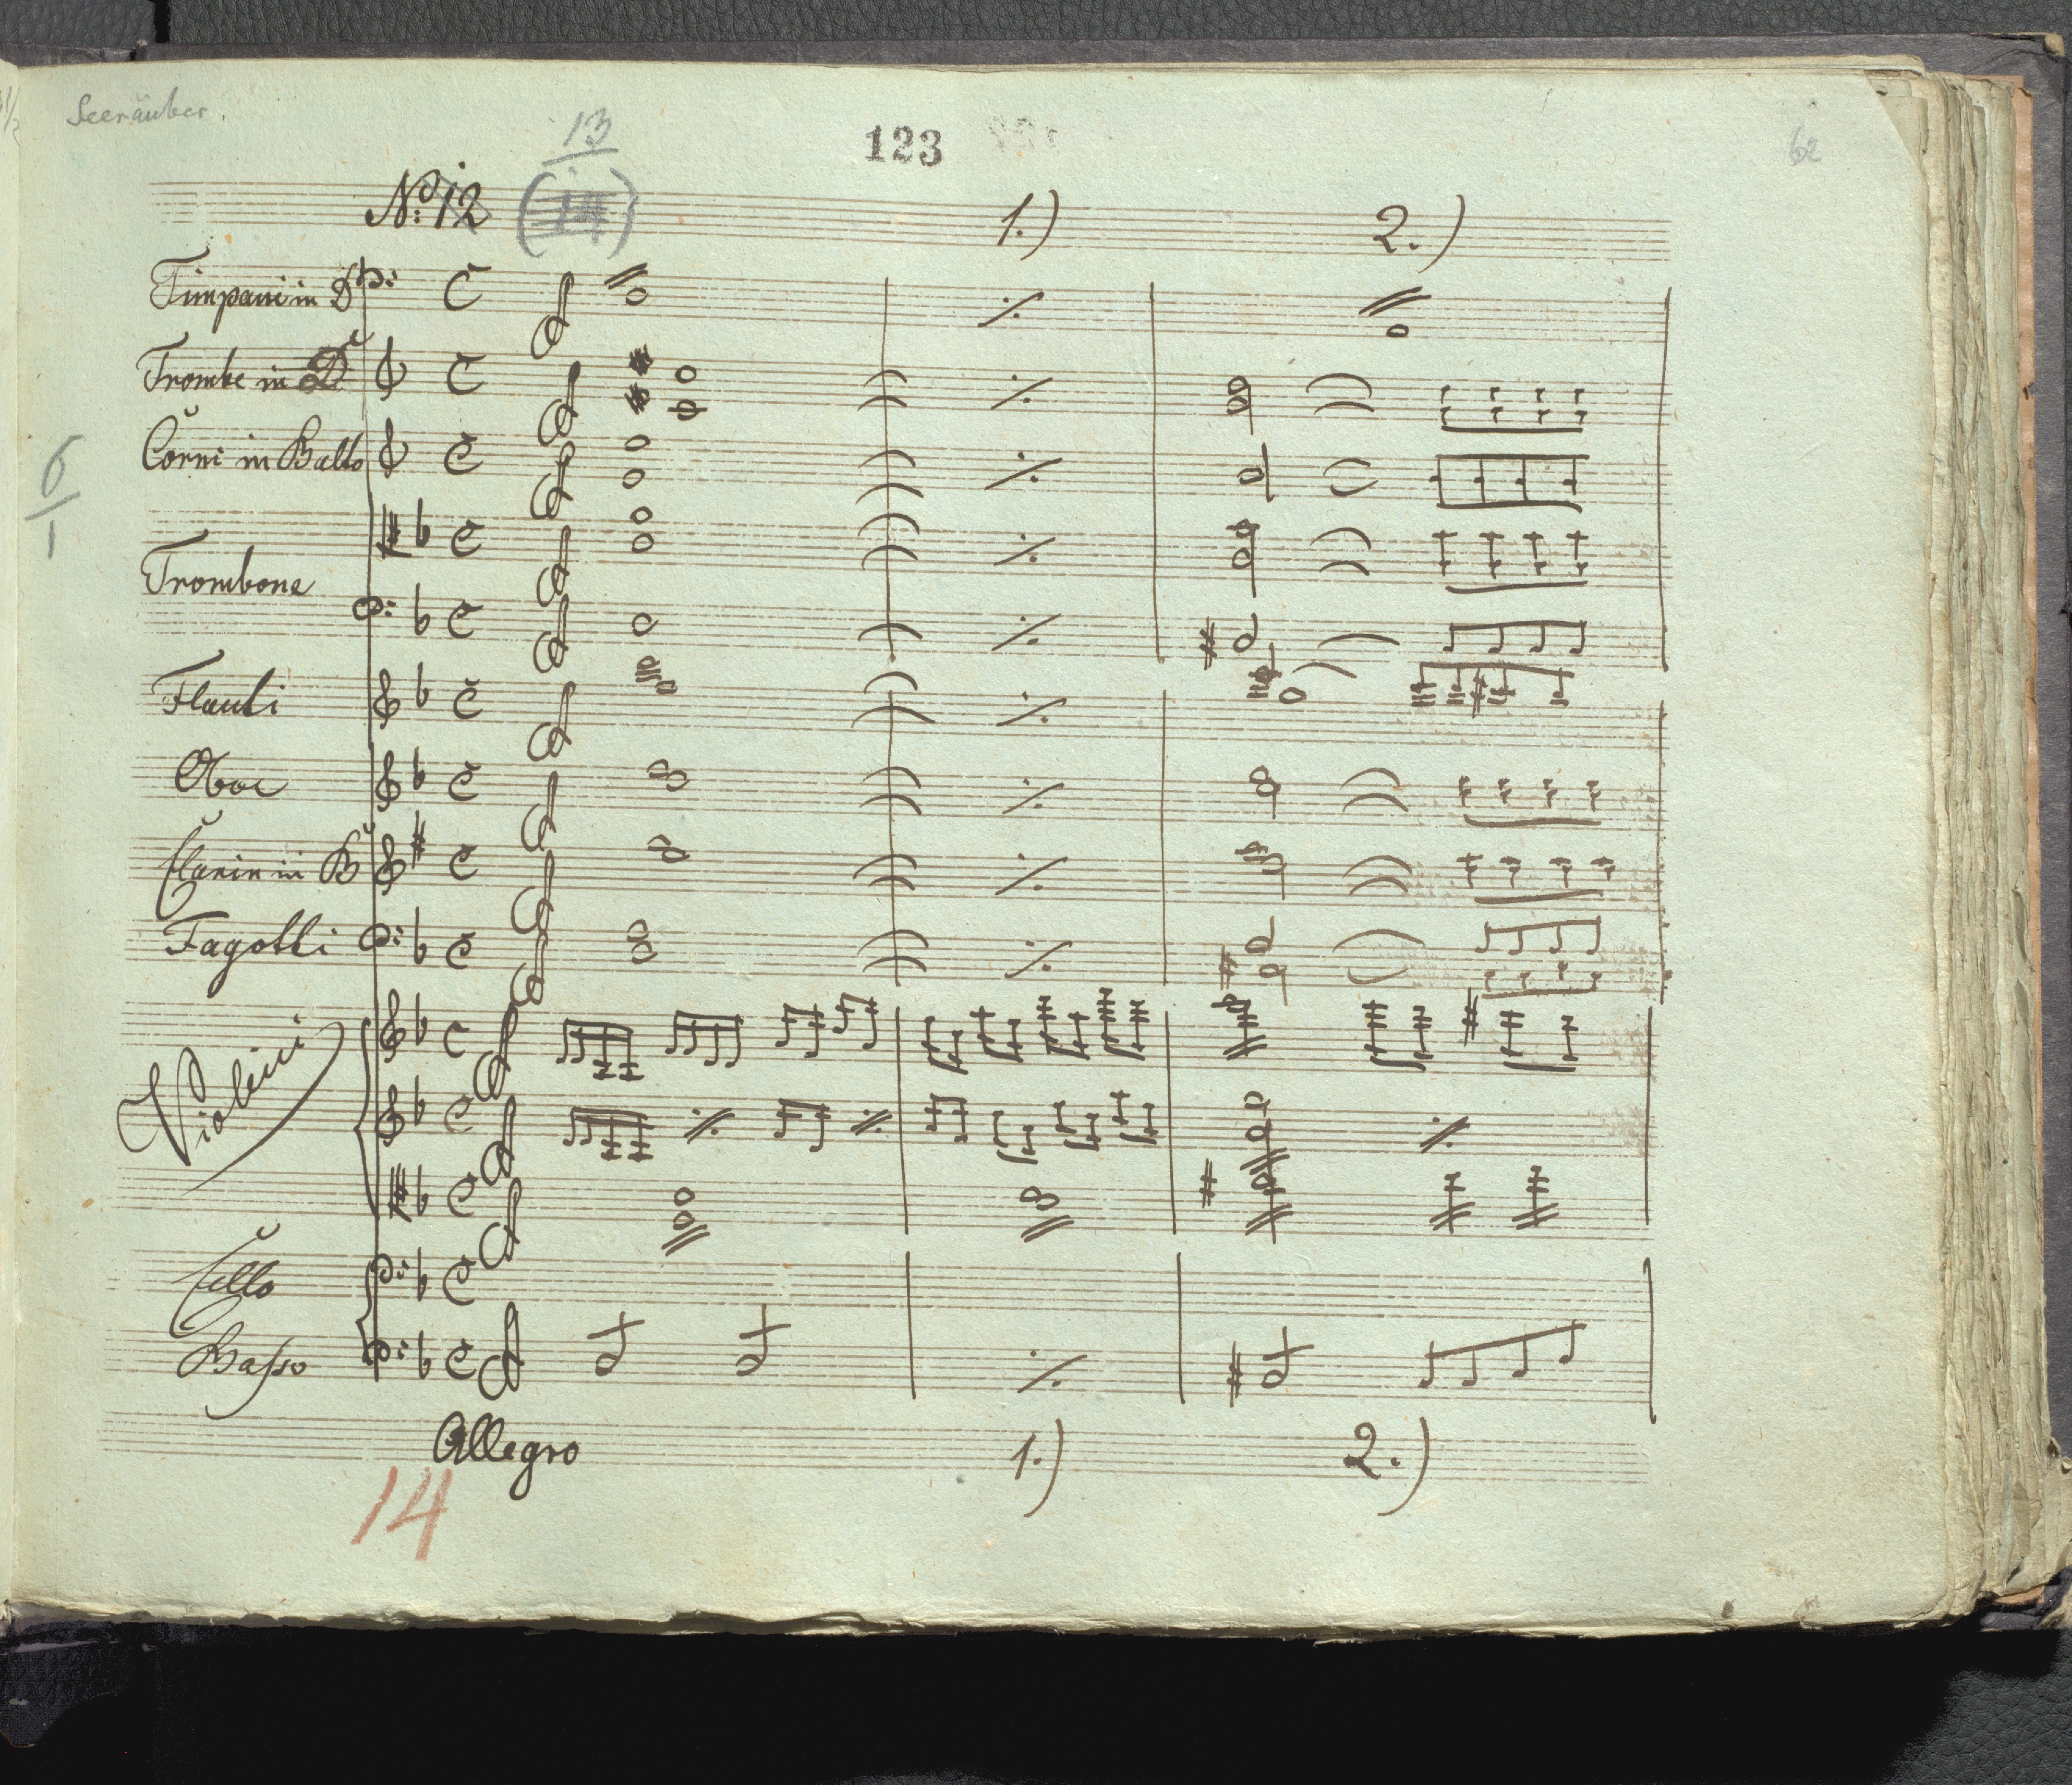 Seeräuber.
13
123
62
No: 12 (14)
1.) 2.)
Timpani in D
Trombe in D
Corni in B alto
6
1
Trombone
Flauti
Oboe
Clarin in B
Fagotti
Violini
Cello
Basso
Allegro 1.) 2.)
14